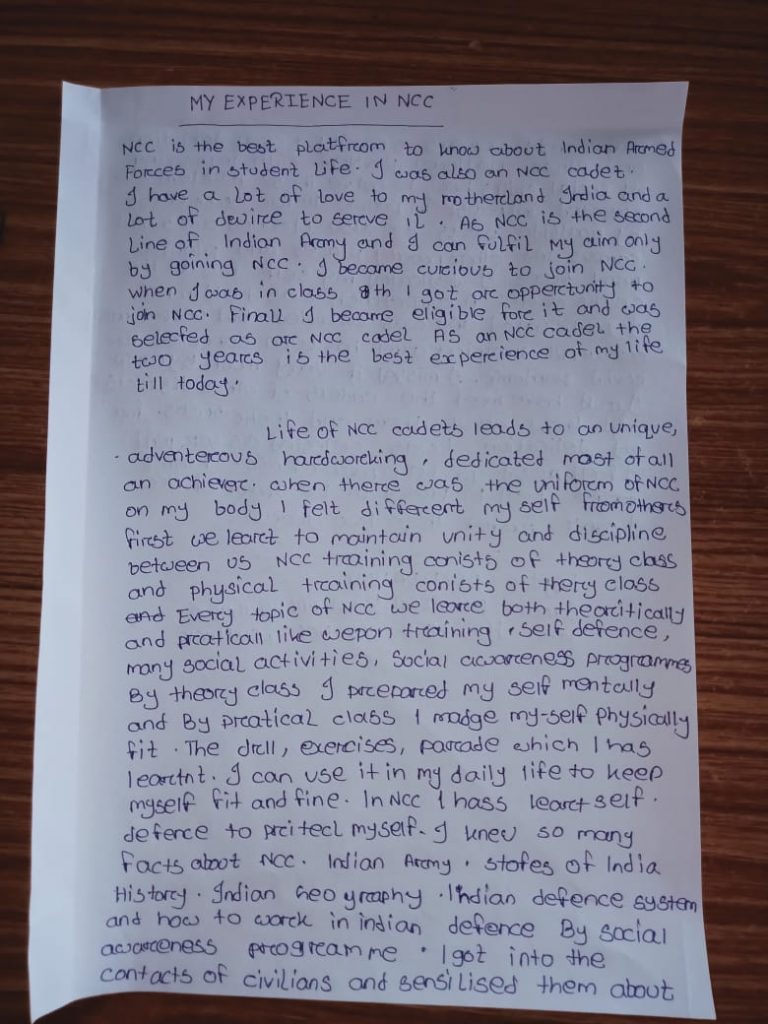 MY EXPERIENCE IN NCC
NCC is the best platfrom to know about Indian Armed
Forces in student Life. I was also an NCC cadet.
I have a Lot of love to my motherland India and a
Lot of dewire to serve it. As NCC is the second
Line of Indian Army and I can fulfil My aim only
by goining NCC. I became curcious to join NCC.
when I was in class 8th I got arc oppertunity to
join NCC. Finall I became eligible fore it and was
selected as arc NCC cadet As an NCC cadet the
two years is the best experience of my life
till today.
Life of NCC cadets leads to an unique,
adventerous hardworking, dedicated most of all
an achiever. when there was the uniform of NCC
on my body I felt different my self from others
first we learct to maintain unity and discipline
between us NCC training conists of theory class
and physical training conists of thery class
and Every topic of NCC we learce both theorcitically
and praticall like wepon training, self defence,
many social activities, Social awareness programmes
By theory class I prepared my self mentally
and By pratical class I madge my-self physically
fit. The drcll, exercises, parade which I has
learctnt. I can use it in my daily life to keep
myself fit and fine. In NCC I hass learct self.
defence to prcitect myself. I knew so many
facts about NCC. Indian Army, stofes of India
History. Indian Geography. Indian defence system
and how to work in indian defence By social
awareness programme. I got into the
contacts of civilians and sensilised them about